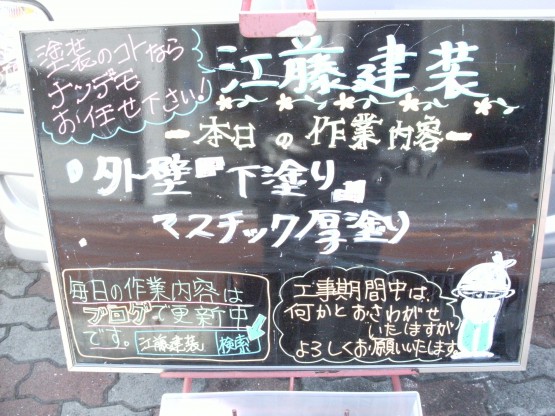 塗装のコトなら
ナンデモ
お任せ下さい!
江藤建装
本日の作業内容
外壁 下塗り
マスチック厚塗り
毎日の作業内容は
ブログで更新中
です。
江藤建装 検索
工事期間中は
何かとおさわがせ
いたしますが
よろしくお願いいたします